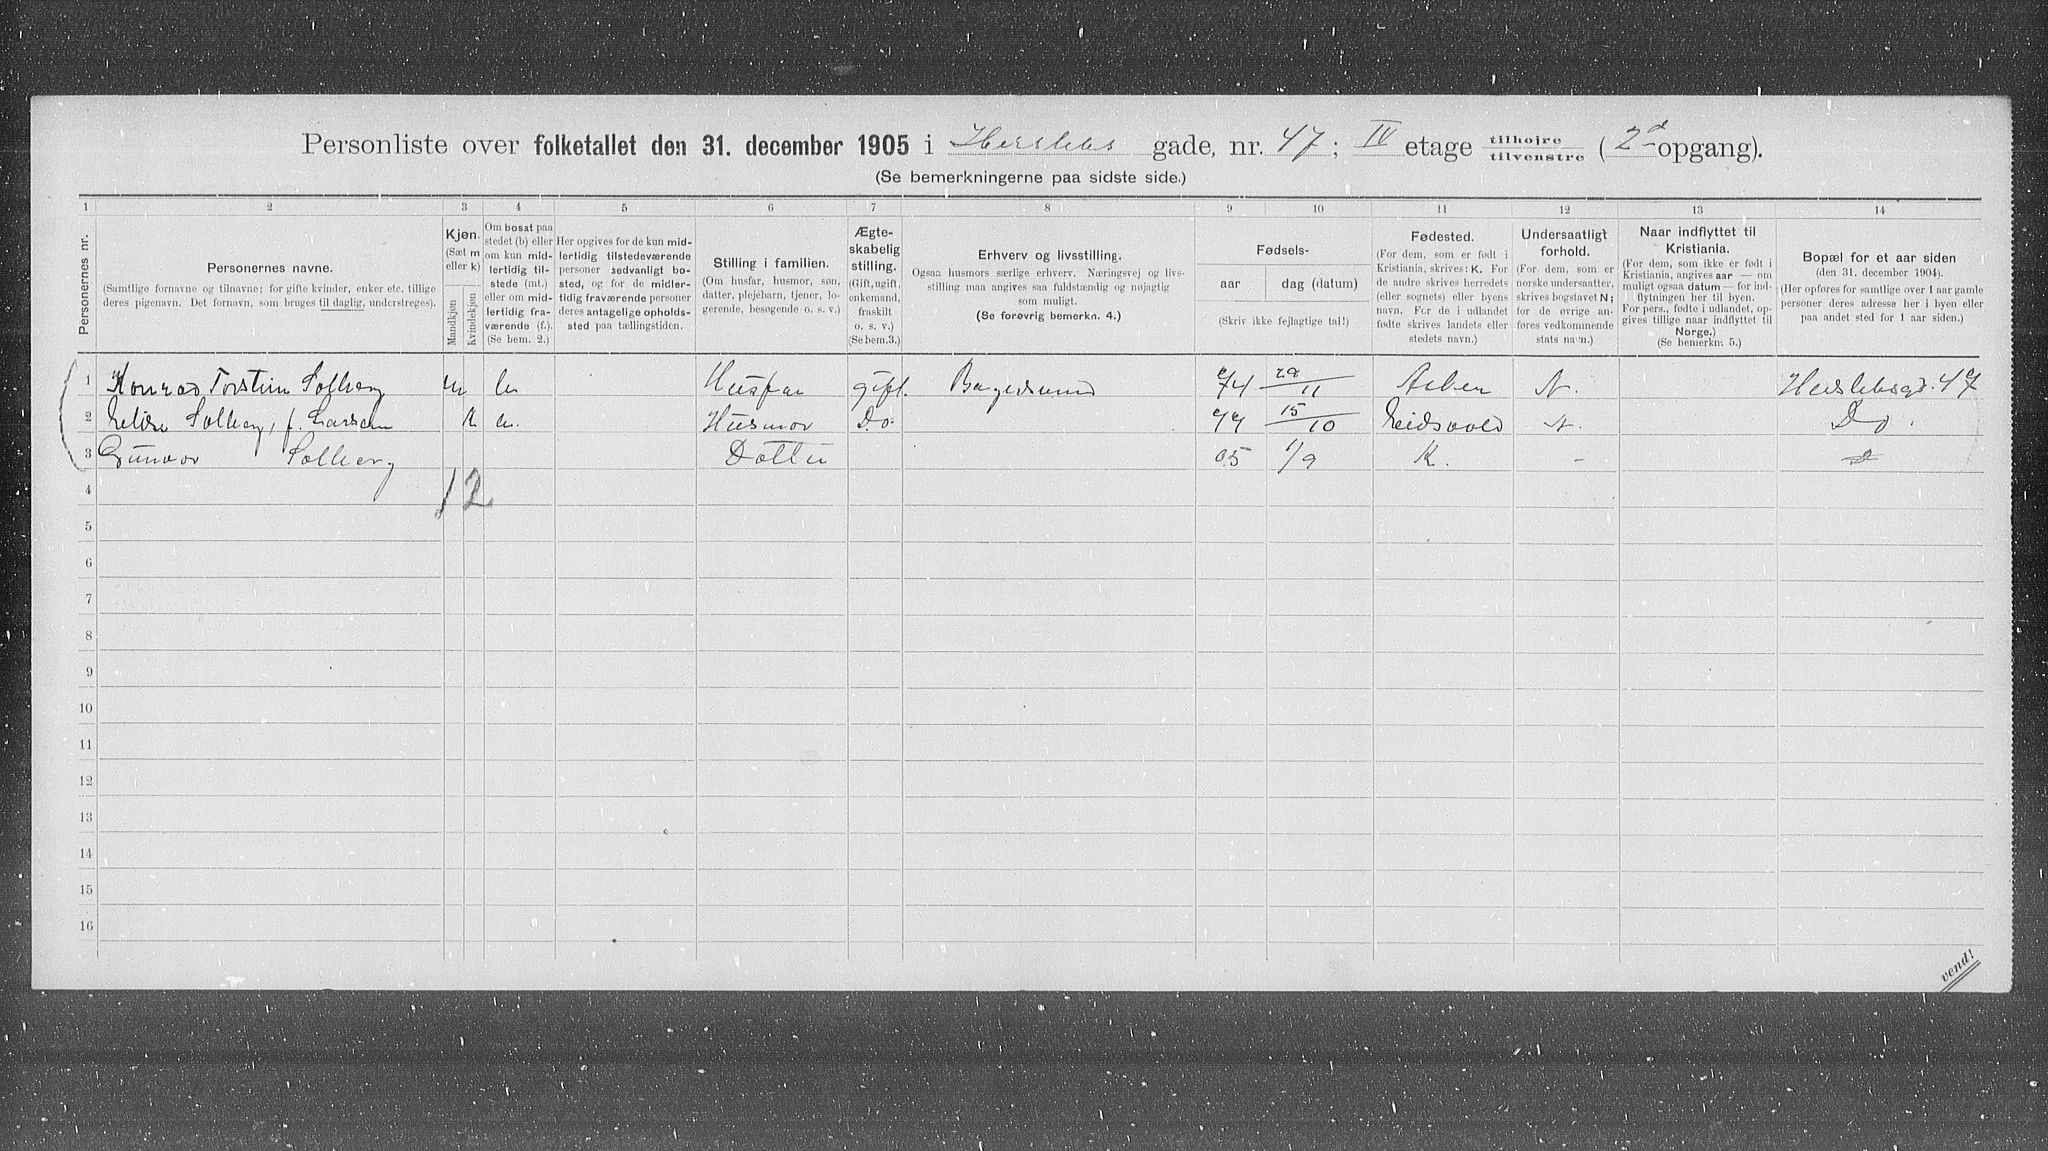 Personliste over folketallet den 31. december 1905 i Herslebs gade, nr. 47; IV etage tilhøjre tilvenstre (2d opgang).
(Se bemerkningerne paa sidste side.)
1 2 3 4 5 6 7 8 9 10 11 12 13 14
Personernes nr.
Personernes navne.
(Samtlige fornavne og tilnavne; for gifte kvinder, enker etc. tillige
deres pigenavn. Det fornavn, som bruges til daglig, understreges).
Kjøn.
(Sæt m
eller k)
Mandkjøn
Kvindekjøn
Om bosat paa
stedet (b) eller
om kun mid-
lertidig til-
stede (mt.)
eller om mid-
lertidig fra-
værende (f.).
(Se bem. 2.)
Her opgives for de kun mid-
lertidig tilstedeværende
personer sedvanligt bo-
sted, og for de midler-
tidig fraværende personer
deres antagelige opholds-
sted paa tællingstiden.
Stilling i familien.
(Om husfar, husmor, søn,
datter, plejebarn, tjener, lo-
gerende, besøgende o. s. v.)
Ægte-
skabelig
stilling.
(Gift, ugift,
enkemand,
fraskilt
o. s. v.)
(Se bem.3.)
Erhverv og livsstilling.
Ogsaa husmors særlige erhverv. Næringsvej og livs-
stilling maa angives saa fuldstændig og nøjagtig
som muligt.
(Se forøvrig bemerkn. 4.)
Fødsels-
aar dag (datum)
(Skriv ikke fejlagtige tal!)
Fødested.
(For dem, som er født i
Kristiania, skrives: K. For
de andre skrives herredets
(eller sognets) eller byens
navn. For de i udlandet
fødte skrives landets eller
stedets navn.)
Undersaatligt
forhold.
(For dem, som er
norske undersaatter,
skrives bogstavet N;
for de øvrige an-
føres vedkommende
stats navn.)
Naar indflyttet til
Kristiania.
(For dem, som ikke er født i
Kristiania, angives aar — om
muligt ogsaa datum — for ind-
flytningen her til byen.
For pers., fødte i udlandet, op-
gives tillige naar indflyttet til
Norge.)
(Se bemerkn. 5.)
Bopæl for et aar siden
(den 31. december 1904).
(Her opføres for samtlige over 1 aar gamle
personer deres adresse her i byen eller
paa andet sted for 1 aar siden.)
1 Konrad Torstein Solberg m Husfar gift. 74 29/11 N. Herslebsgd. 47
2 Solberg, f. Larsen K Husmor Do. 15/10 Eidsvold N. Do.
3 Gunvor Solberg Datter 05 1/9 K. -
4 1 2
5
6
7
8
9
10
11
12
13
14
15
16
vend!